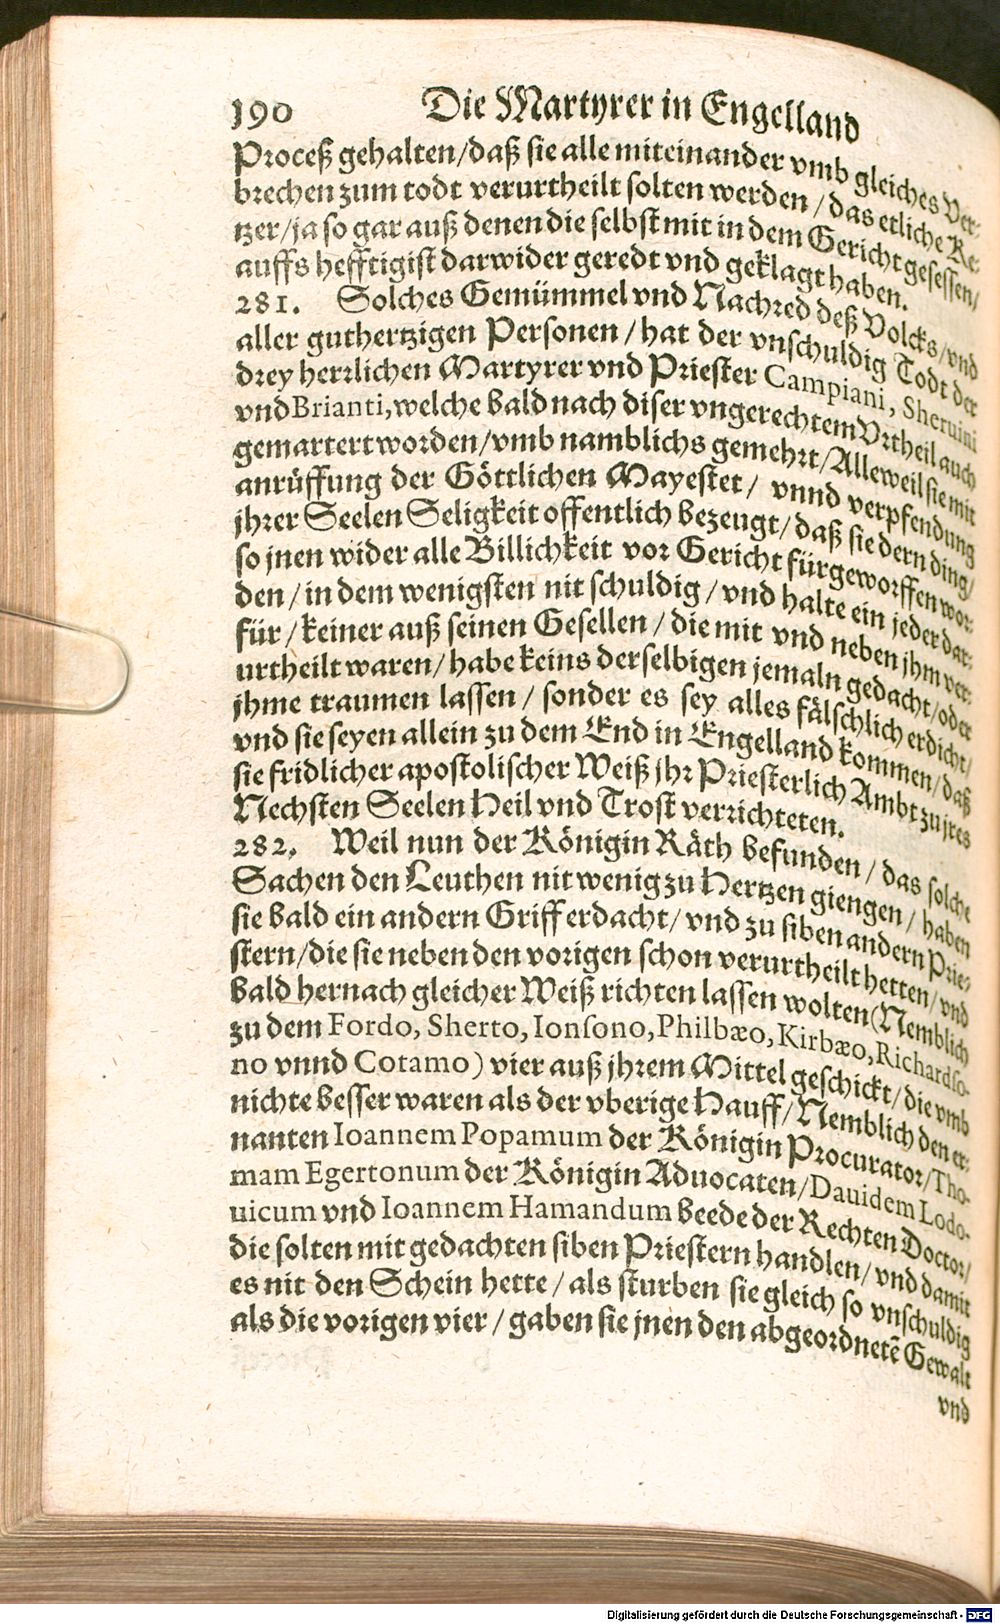 190 Die Martyrer in Engelland
Proceß gehalten/daß sie alle miteinander vmb gleiches Ver-
brechen zum todt verurtheilt solten werden/das etliche Ke-
tzer/ja so gar auß denen die selbst mit in dem Gericht gesessen/
auffs hefftigist darwider geredt vnd geklagt haben.
281. Solches Gemümmel vnd Nachred deß Volcks/vnd
aller guthertzigen Personen/hat der vnschuldig Todt der
drey herrlichen Martyrer vnd Priester Campiani, Sheruini
vnd Brianti, welche bald nach diser vngerechtem Vrtheil auch
gemartert worden/vmb namblichs gemehrt/Alleweil sie mit
anrüffung der Göttlichen Mayestet/ vnnd verpfendung
jhrer Seelen Seligkeit offentlich bezeugt/daß sie dern ding/
so jnen wider alle Billichkeit vor Gericht fürgeworffen wor-
den/in dem wenigsten nit schuldig/vnd halte ein jeder dar-
für/keiner auß seinen Gesellen/die mit vnd neben jhm ver-
urtheilt waren/habe keins derselbigen jemaln gedacht/oder
jhme traumen lassen/ sonder es sey alles fälschlich erdicht/
vnd sie seyen allein zu dem End in Engelland kommen/daß
sie fridlicher apostolischer Weiß jhr Priesterlich Ambt zu jres
Nechsten Seelen Heil vnd Trost verrichteten.
282. Weil nun der Königin Räth befunden/das solche
Sachen den Leuthen nit wenig zu Hertzen giengen/haben
sie bald ein andern Griff erdacht/vnd zu siben andern Prie-
stern/die sie neben den vorigen schon verurtheilt hetten/vnd
bald hernach gleicher Weiß richten lassen wolten (Nemblich
zu dem Fordo, Sherto, Ionsono, Philbæo, Kirbæo, Richardso-
no vnnd Cotamo) vier auß jhrem Mittel geschickt/die vmb
nichte besser waren als der vberige Hauff/Nemblich den er-
nanten Ioannem Popamum der Königin Procurator/Tho-
mam Egertonum der Königin Aduocaten/Dauidem Lodo-
uicum vnd Ioannem Hamandum beede der Rechten Doctor/
die solten mit gedachten siben Priestern handlen/vnd damit
es nit den Schein hette/als sturben sie gleich so vnschuldig
als die vorigen vier/gaben sie jnen den abgeordnetẽ Gewalt
vnd
Digitalisierung gefördert durch die Deutsche Forschungsgemeinschaft - DFG